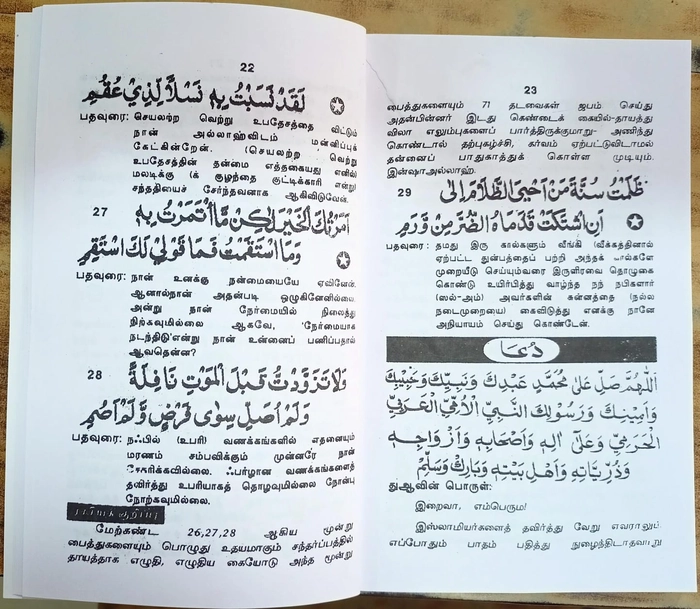 22
لَقَدْ نَسَبْتُ بِهٖ نَسْلًا لِّذِيْ عُقُمٍ
பதவுரை: செயலற்ற வெற்று உபதேசத்தை விட்டும்
நான் அல்லாஹ்விடம் மன்னிப்புக்
கேட்கின்றேன். (செயலற்ற வெற்று
உபதேசத்தின் தன்மை எத்தகையது எனில்)
மலடிக்கு (க் குழந்தை குட்டிக்காரி என்று)
சந்ததியைச் சேர்ந்தவனாக ஆகிவிடுவேன்.
27
اَمَرْتُكَ الْخَيْرَ لٰكِنْ مَّا ائْتَمَرْتُ بِهٖ
وَمَا اسْتَقَمْتُ فَمَا قَوْلِيْ لَكَ اسْتَقِمِ
பதவுரை: நான் உனக்கு நன்மையையே ஏவினேன்.
ஆனால்நான் அதன்படி ஒழுகினேனில்லை.
அன்று நான் நேர்மையில் நிலைத்து
நிற்கவுமில்லை ஆகவே, 'நேர்மையாக
நடந்திடு'என்று நான் உன்னைப் பணிப்பதால்
ஆவதென்ன?
28
وَلَا تَزَوَّدْتُ قَبْلَ الْمَوْتِ نَافِلَةً
وَلَمْ اُصَلِّ سِوٰى فَرْضٍ وَّلَمْ اَصُمِ
பதவுரை: நஃபில் (உபரி) வணக்கங்களில் எதனையும்
மரணம் சம்பவிக்கும் முன்னரே நான்
சேகரிக்கவில்லை. ஃபர்ழான வணக்கங்களைத்
தவிர்த்து உபரியாகத் தொழவுமில்லை நோன்பு
நோற்கவுமில்லை.
மேற்கண்ட 26,27,28 ஆகிய மூன்று
பைத்துகளையும் பொழுது உதயமாகும் சந்தர்ப்பத்தில்
தாயத்தாக எழுதி, எழுதிய கையோடு அந்த மூன்று
23
பைத்துகளையும் 71 தடவைகள் ஜபம் செய்து
அதன்பின்னர் இடது கெண்டைக் கையில்-தாயத்து
விலா எலும்புகளைப் பார்த்திருக்குமாறு- அணிந்து
கொண்டால் தற்புகழ்ச்சி, கர்வம் ஏற்பட்டுவிடாமல்
தன்னைப் பாதுகாத்துக் கொள்ள முடியும்.
இன்ஷாஅல்லாஹ்.
29
ظَلَمْتُ سُنَّةَ مَنْ اَحْيَى الظَّلَامَ اِلٰى
اَنِ اشْتَكَتْ قَدَمَاهُ الضُّرَّ مِنْ وَّرَمِ
பதவுரை: தமது இரு கால்களும் வீங்கி (வீக்கத்தினால்
ஏற்பட்ட துன்பத்தைப் பற்றி அந்தக் கால்களே
முறையீடு செய்யும்வரை இருளிரவை தொழுகை
கொண்டு உயிர்பித்து வாழ்ந்த நந் நபிகளார்
(ஸல்-அம்) அவர்களின் சுன்னத்தை (நல்ல
நடைமுறையை) கைவிடுத்து எனக்கு நானே
அநியாயம் செய்து கொண்டேன்.
دُعَا
اَللّٰهُمَّ صَلِّ عَلٰى مُحَمَّدٍ عَبْدِكَ وَنَبِيِّكَ وَحَبِيْبِكَ
وَاَمِيْنِكَ وَرَسُوْلِكَ النَّبِيِّ الْاُمِّيِّ الْعَرَبِيِّ
الْحَرَمِيِّ وَعَلٰى اٰلِهٖ وَاَصْحَابِهٖ وَاَزْوَاجِهٖ
وَذُرِّيَّاتِهٖ وَاَهْلِ بَيْتِهٖ وَبَارِكْ وَسَلِّمْ
துஆவின் பொருள்:
இறைவா, எம்பெரும!
இஸ்லாமியர்களைத் தவிர்த்து வேறு எவராலும்
எப்போதும் பாதம் பதித்து நுழைந்திடாதவாறு